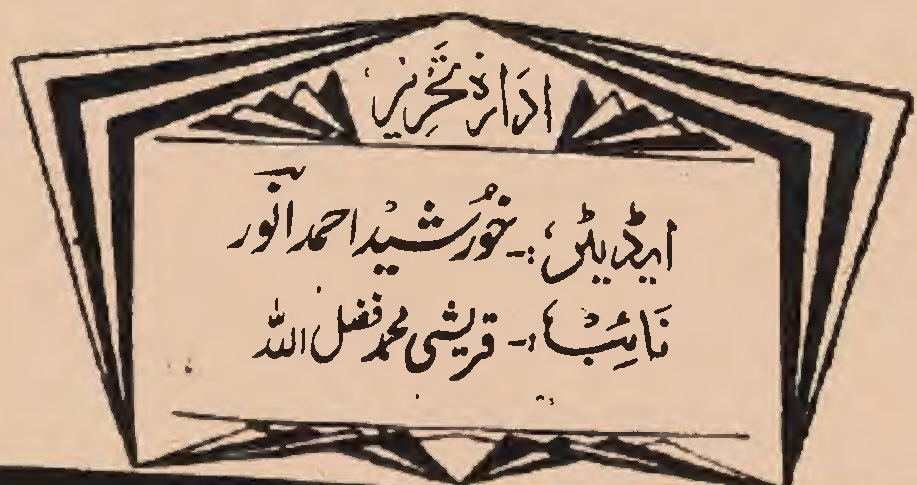 ادارۂ تحریر
ایڈیٹر:۔ خورشید احمد انور
نائب:۔ قریشی محمد فضل اللہ